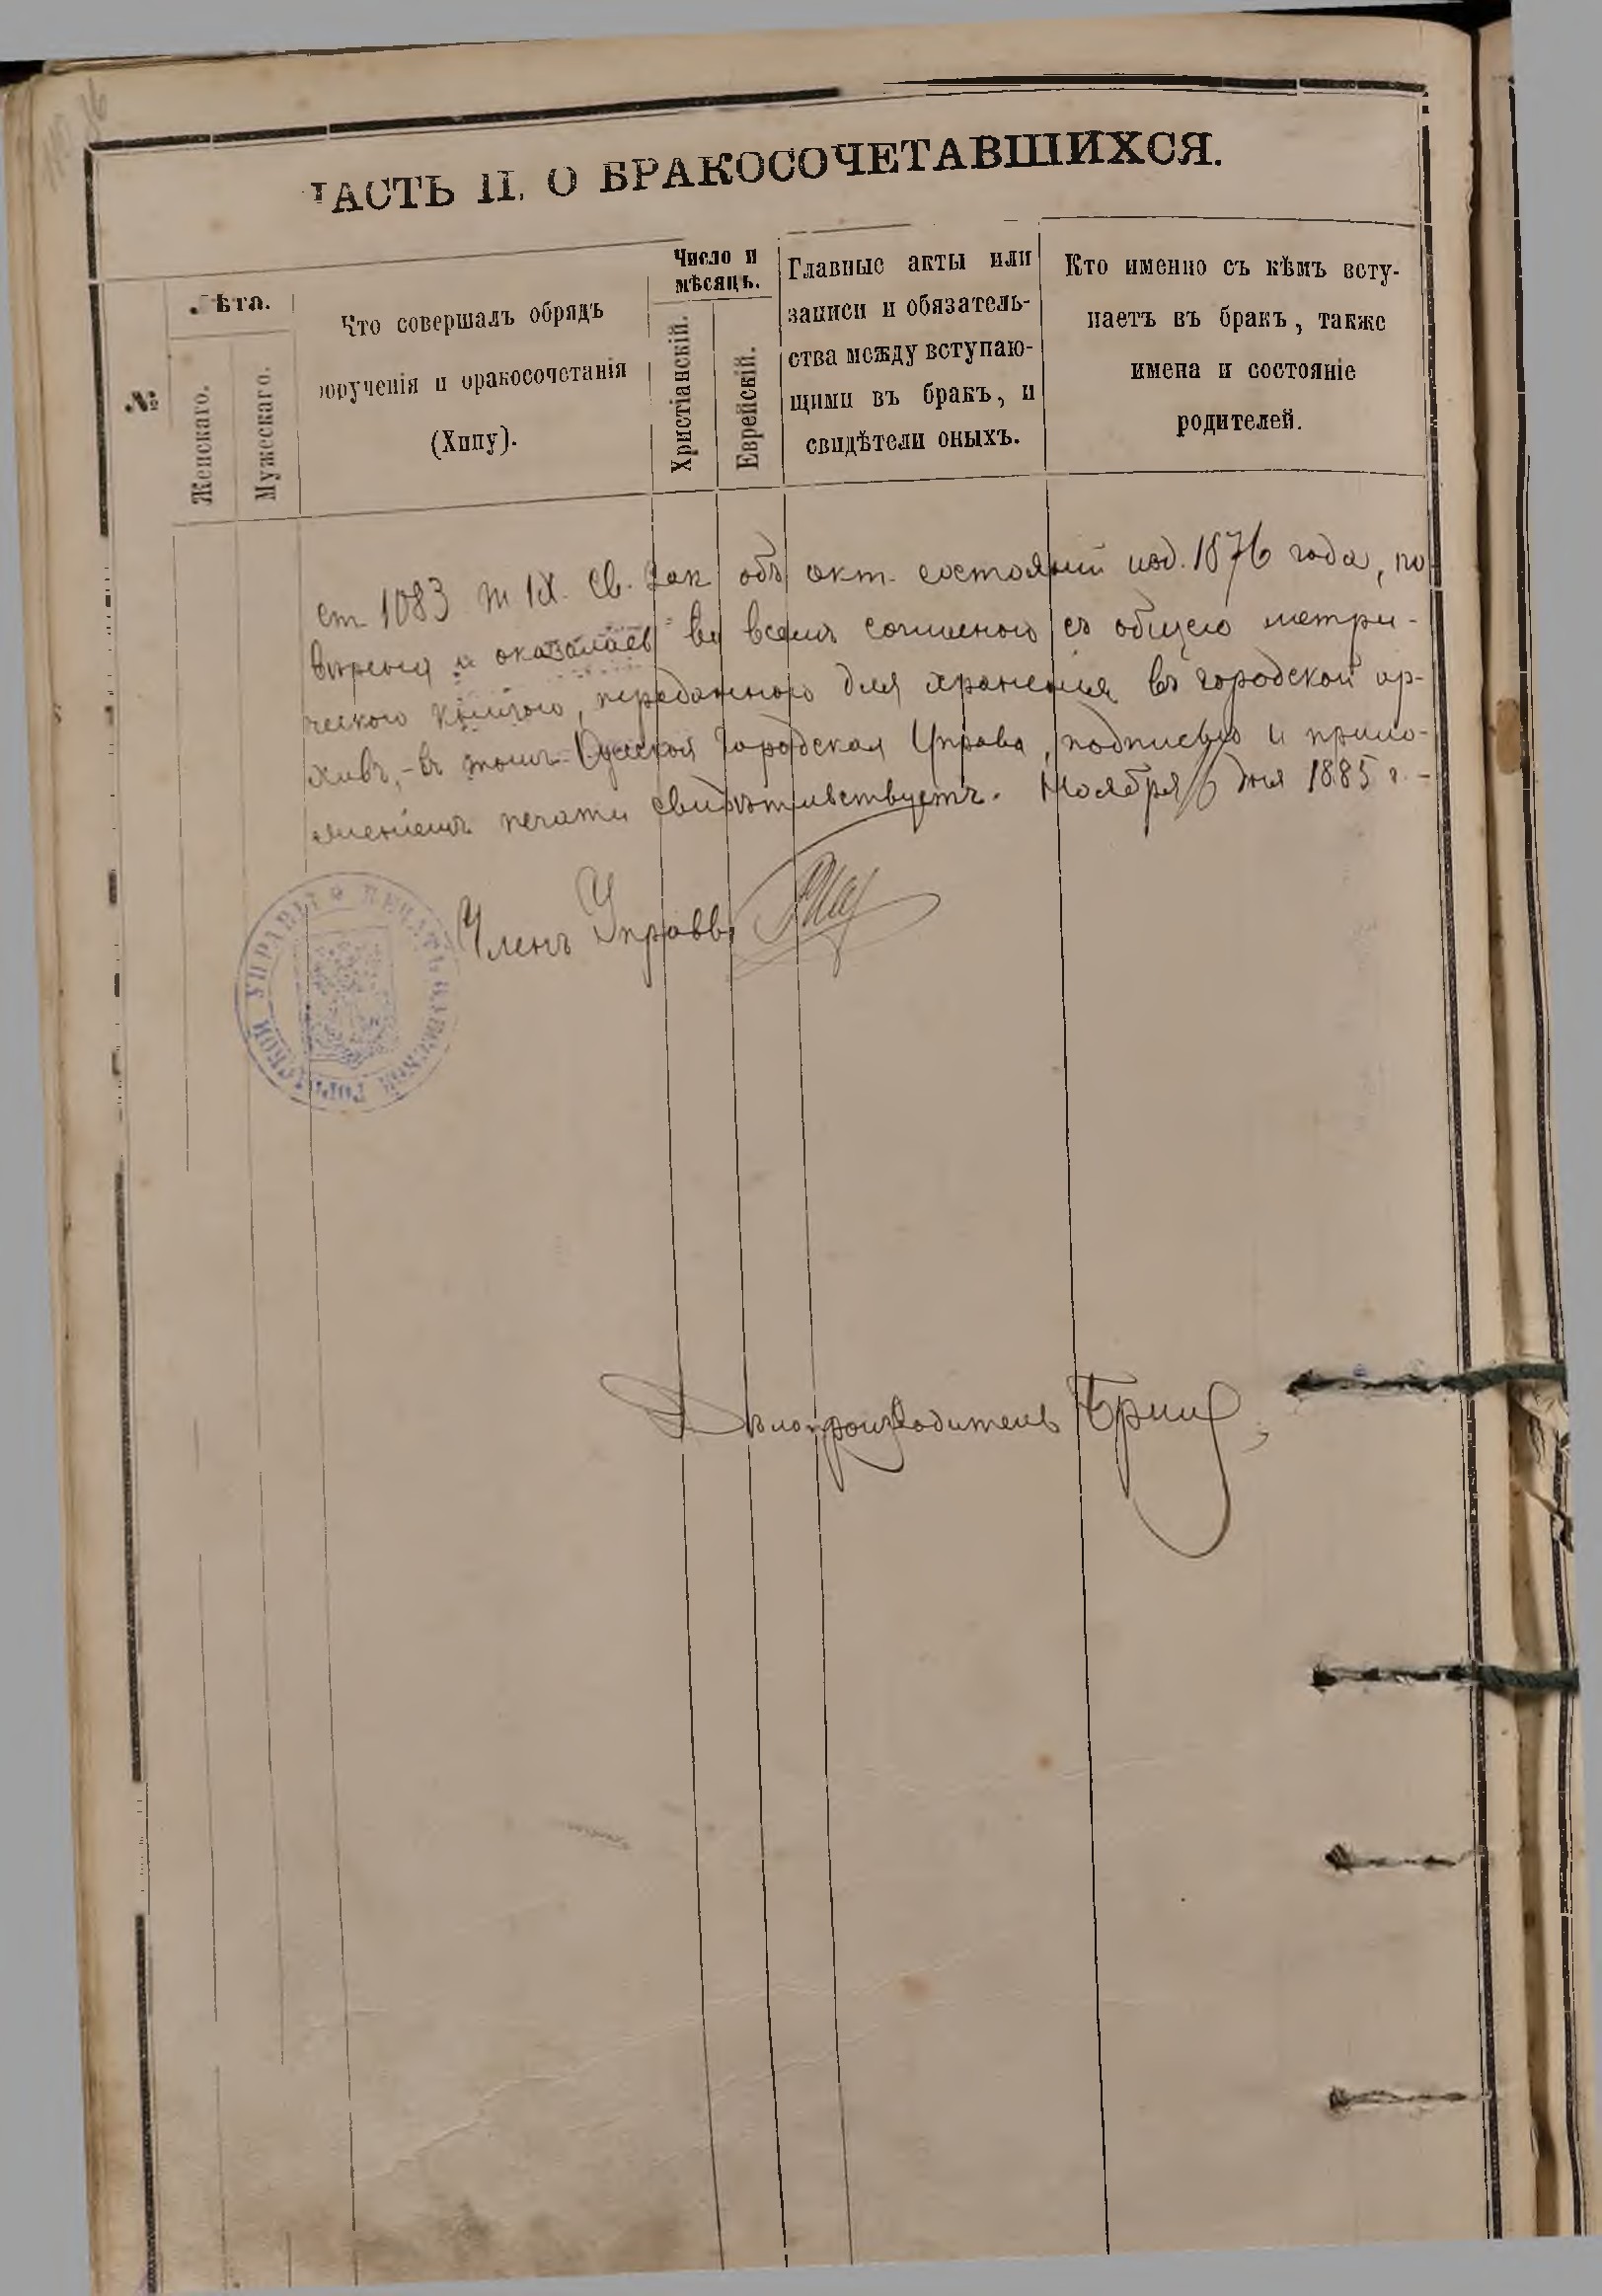 ЧАСТЬ II. О БРАКОСОЧЕТАВШИХСЯ.
№
Лѣта.
Женскаго.
Мужескаго.
Кто совершалъ обрядъ
обрученія и бракосочетанія
(Хипу).
Число и
мѣсяцъ.
Христіанскій.
Еврейскій.
Главные акты или
записи и обязатель-
ства между вступаю-
щими въ бракъ, и
свидѣтели оныхъ.
Кто именно съ кѣмъ всту-
паетъ въ бракъ, также
имена и состояніе
родителей.
ст 1083 т IX. Св. Зак объ акт. состояній изд. 1876 года, по
вѣрена и оказалась во всемъ согласною съ общею метри-
ческою книгою, переданною для храненія въ городской ар-
хивъ, - въ томъ Одесская Городская Управа, подписью и прило-
женіемъ печати свидѣтельствуетъ. Ноября 6 дня 1885 г. -
Членъ Управы
ПЕЧАТЬ ОДЕССКОЙ ГОРОДСКОЙ УПРАВЫ
Дѣлопроизводитель